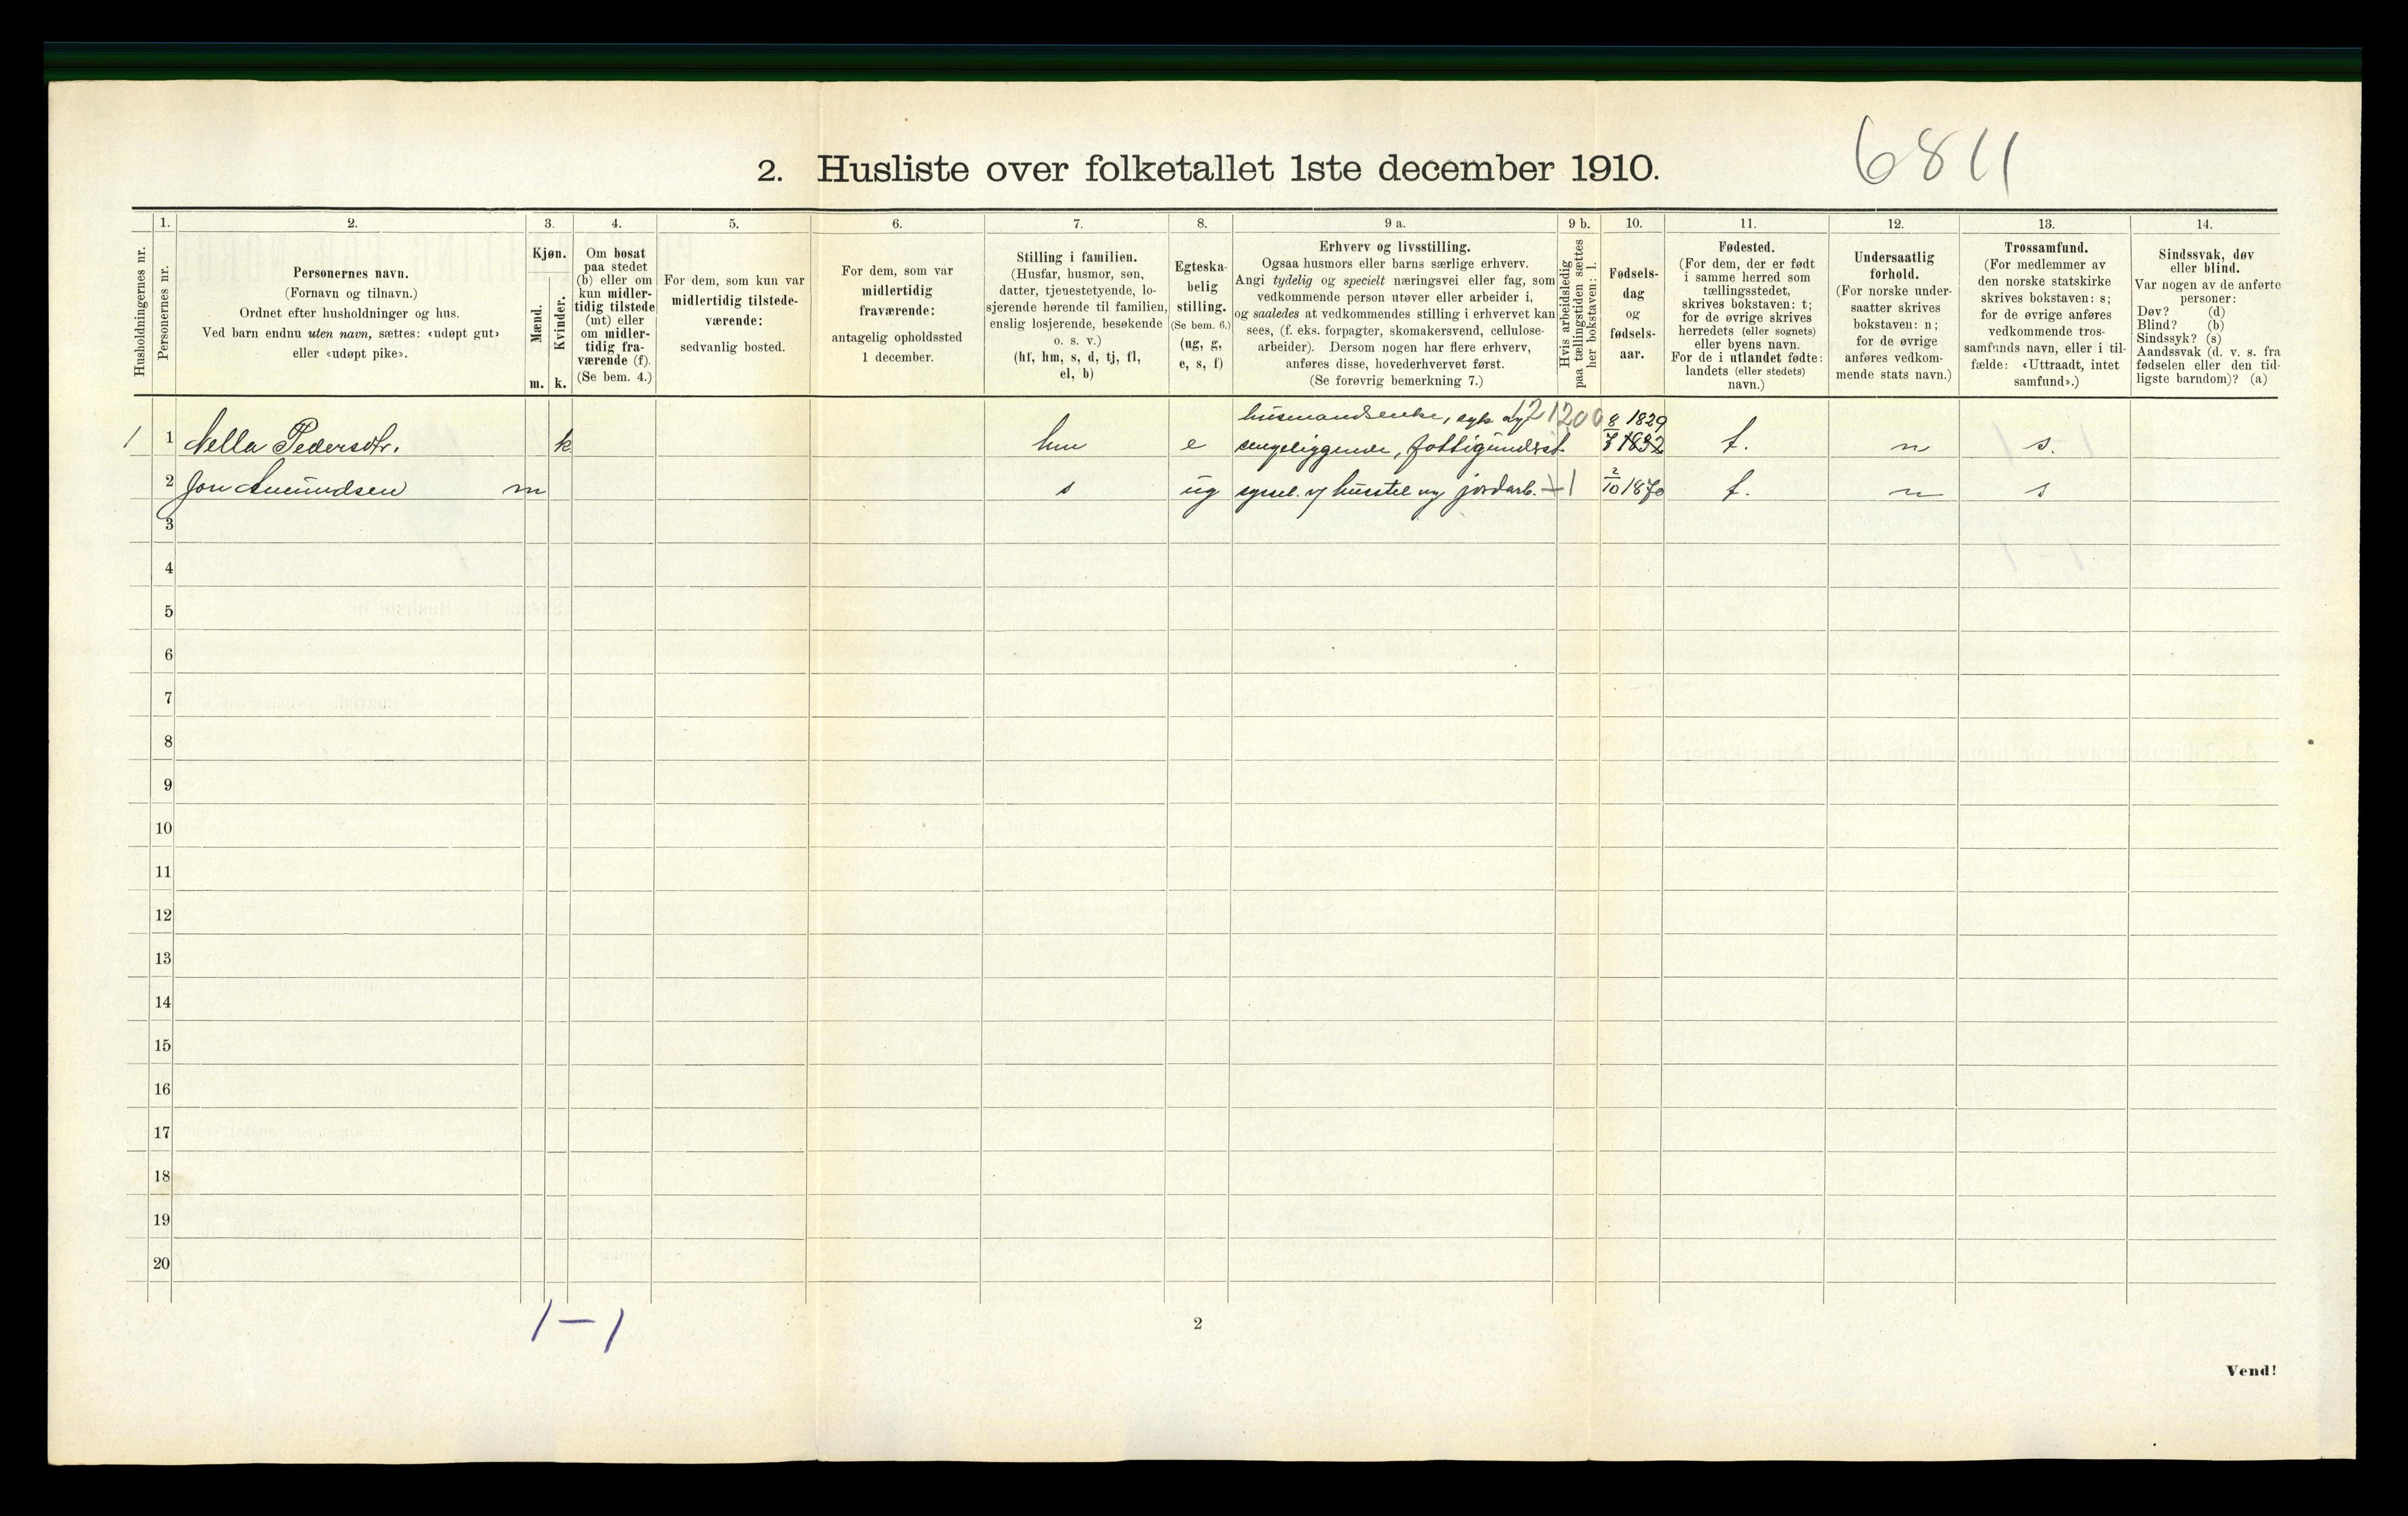 6811
2. Husliste over folketallet 1ste december 1910.
Husholdningernes nr.
1.
Personernes nr.
2.
Personernes navn.
(Fornavn og tilnavn.)
Ordnet efter husholdninger og hus.
Ved barn endnu uten navn, sættes: «udøpt gut»
eller «udøpt pike».
3.
Kjøn.
Mænd.
Kvinder.
m. k.
4.
Om bosat
paa stedet
(b) eller om
kun midler-
tidig tilstede
(mt) eller
om midler-
tidig fra-
værende (f).
(Se bem. 4.)
5.
For dem, som kun var
midlertidig tilstede-
værende:
sedvanlig bosted.
6.
For dem, som var
midlertidig
fraværende:
antagelig opholdssted
1 december.
7.
Stilling i familien.
(Husfar, husmor, søn,
datter, tjenestetyende, lo-
sjerende hørende til familien,
enslig losjerende, besøkende
o. s. v.)
(hf, hm, s, d, tj, fl,
el, b)
8.
Egteska-
belig
stilling.
(Se bem. 6.)
(ug, g,
e, s, f)
9 a.
Erhverv og livsstilling.
Ogsaa husmors eller barns særlige erhverv.
Angi tydelig og specielt næringsvei eller fag, som
vedkommende person utøver eller arbeider i,
og saaledes at vedkommendes stilling i erhvervet kan
sees, (f. eks. forpagter, skomakersvend, cellulose-
arbeider). Dersom nogen har flere erhverv,
anføres disse, hovederhvervet først.
(Se forøvrig bemerkning 7.)
9 b.
Hvis arbeidsledig
paa tællingstiden sættes
her bokstaven: l.
10.
Fødsels-
dag
og
fødsels-
aar.
11.
Fødested.
(For dem, der er født
i samme herred som
tællingsstedet,
skrives bokstaven: t;
for de øvrige skrives
herredets (eller sognets)
eller byens navn.
For de i utlandet fødte:
landets (eller stedets)
navn.)
12.
Undersaatlig
forhold.
(For norske under-
saatter skrives
bokstaven: n;
for de øvrige
anføres vedkom-
mende stats navn.)
13.
Trossamfund.
(For medlemmer av
den norske statskirke
skrives bokstaven: s;
for de øvrige anføres
vedkommende tros-
samfunds navn, eller i til-
fælde: «Uttraadt, intet
samfund».)
14.
Sindssvak, døv
eller blind.
Var nogen av de anførte
personer:
Døv? (d)
Blind? (b)
Sindssyk? (s)
Aandssvak (d. v. s. fra
fødselen eller den tid-
ligste barndom)? (a)
husmandsenke, syk og 121200 8 1829
1 1 Nella Pedersdtr. k hm e sengeliggende, fattigunderst. 7 1832 t. n s.
2 Jon Amundsen m s ug syssel. v/ husstel og jordarb. 2/10 1870 t. n s
3
4
5
6
7
8
9
10
11
12
13
14
15
16
17
18
19
20
1 – 1
2
Vend!